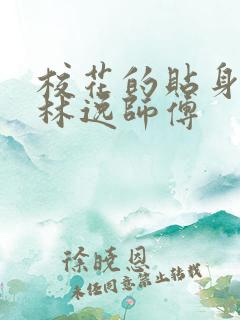 校花的貼身
林逸師傅
徐曉恩
未任同意禁止转载